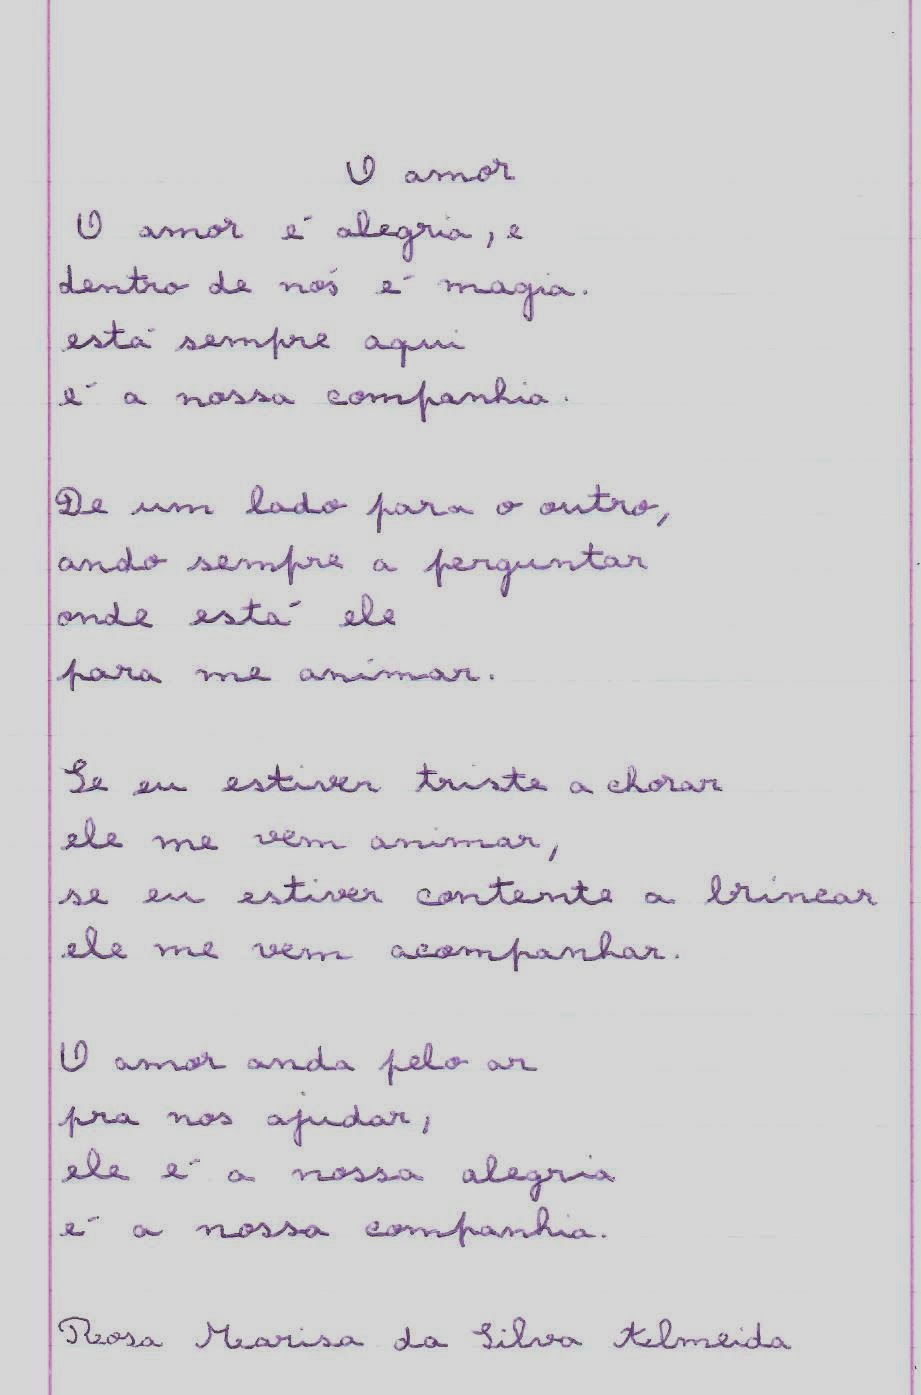 O amor
O amor é alegria, e
dentro de nós é magia.
está sempre aqui
é a nossa companhia.
De um lado para o outro,
ando sempre a perguntar
onde está ele
para me animar.
Se eu estiver triste a chorar
ele me vem animar,
se eu estiver contente a brincar
ele me vem acompanhar.
O amor anda pelo ar
pra nos ajudar,
ele é a nossa alegria
é a nossa companhia.
Rosa Marisa da Silva Almeida